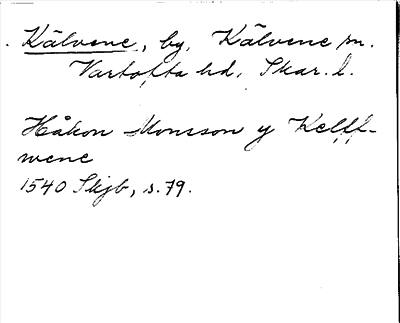 Kälvene, by, Kälvene sn.
Vartofta hd, Skar. l.
Håkon Monsson y Kelff-
wene
1540 Skjb, s. 79.